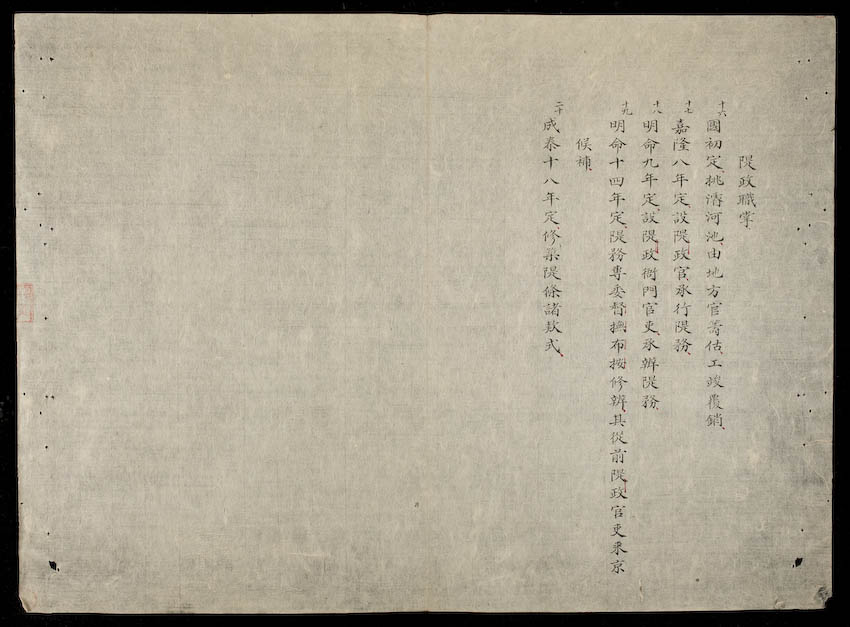 隄政職掌
十六國初定挑濬河池由地方官籌估工竣覆銷
十七嘉隆八年定設隄政官承行隄務
十八明命九年定設隄政衙門官吏承辦隄務
十九明命十四年定隄務專委督撫布按修辦其從前隄政官吏來京
候補
二十成泰十八年定修築隄條諸款式